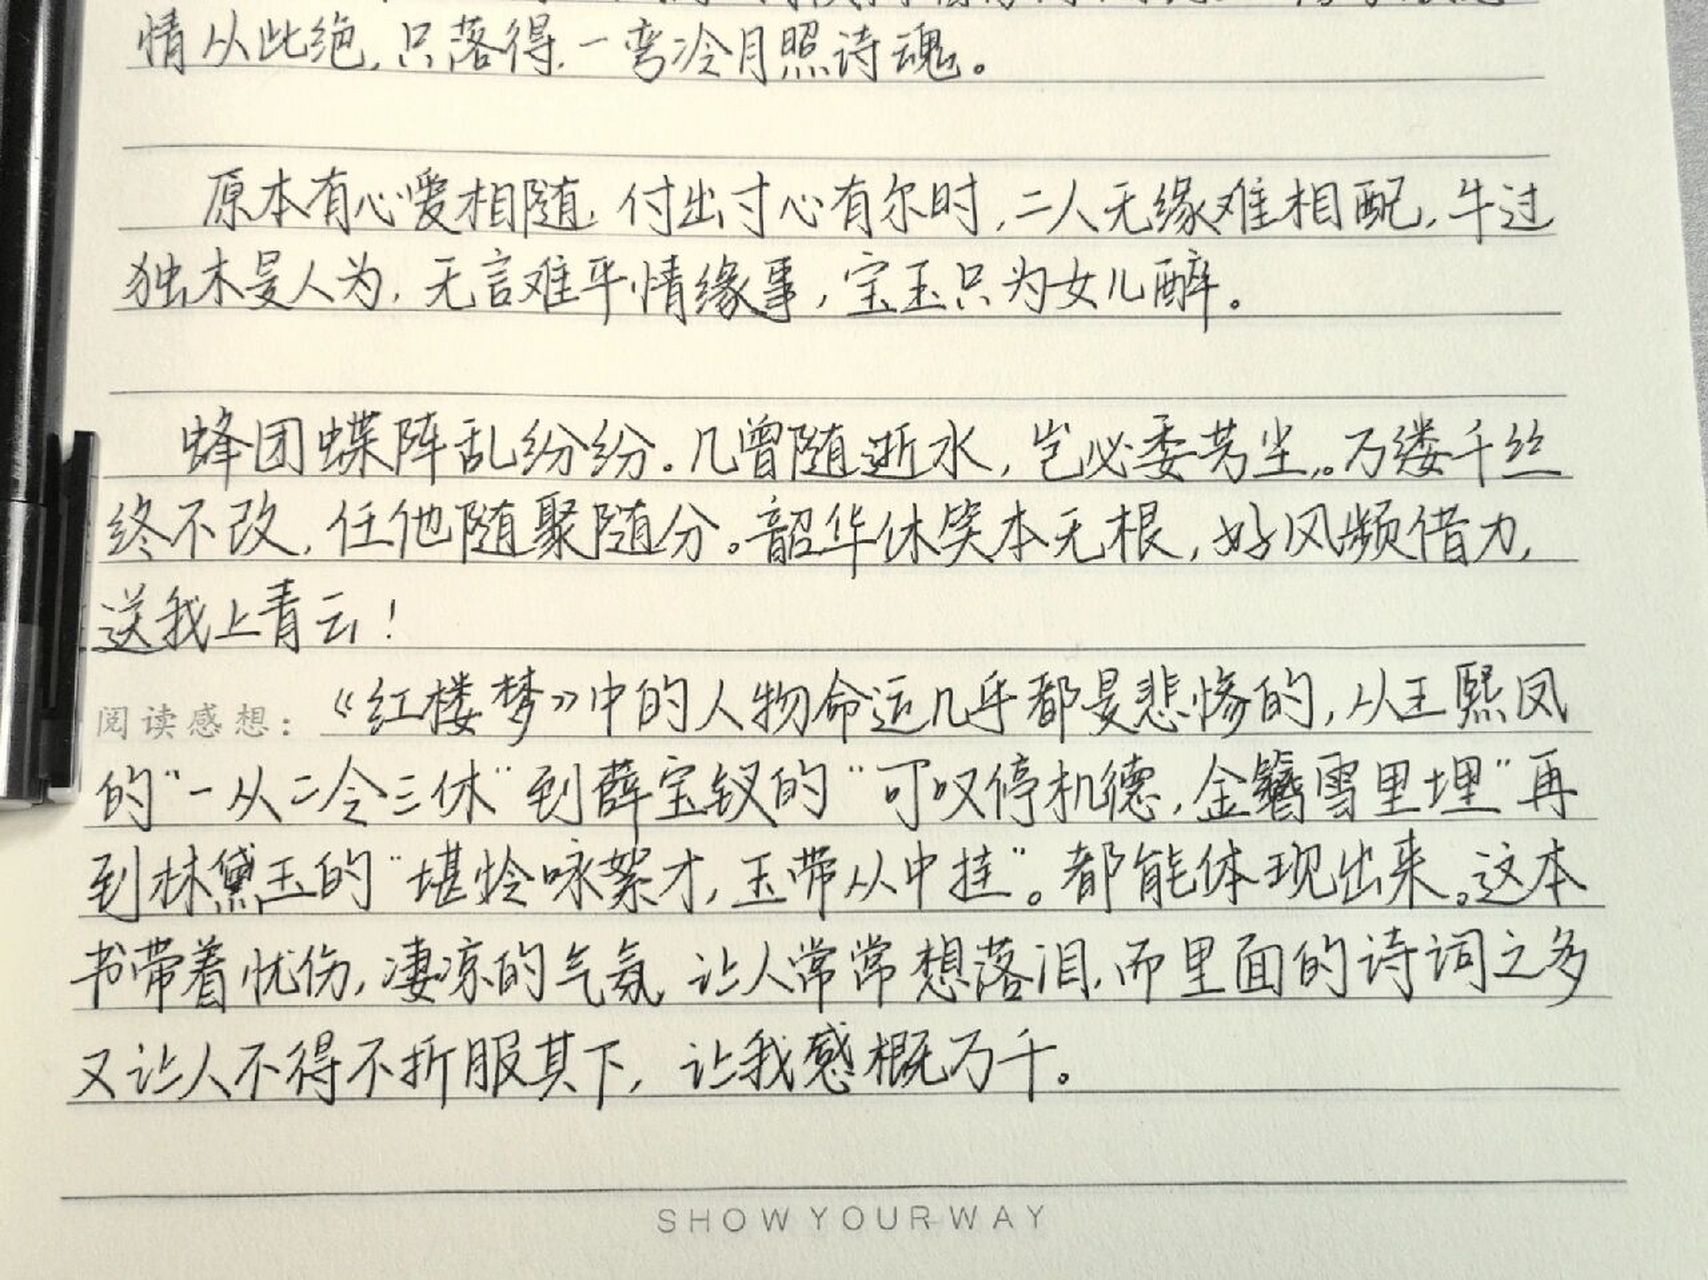 情从此绝,只落得.一弯冷月照诗魂。
原本有心爱相随,付出寸心有尔时,二人无缘难相配,牛过
独木是人为,无言难平情缘事,宝玉只为女儿醉。
蜂团蝶阵乱纷纷。几曾随逝水,岂必委芳尘。万缕千丝
终不改,任他随聚随分。韶华休笑本无根,好风频借力,
送我上青云!
阅读感想:《红楼梦》中的人物命运几乎都是悲惨的,从王熙凤
的"一从二令三休"到薛宝钗的"可叹停机德,金簪雪里埋"再
到林黛玉的"堪怜咏絮才,玉带从中挂"。都能体现出来。这本
书带着忧伤,凄凉的气氛,让人常常想落泪,而里面的诗词之多
又让人不得不折服其下,让我感概万千。
SHOW YOUR WAY